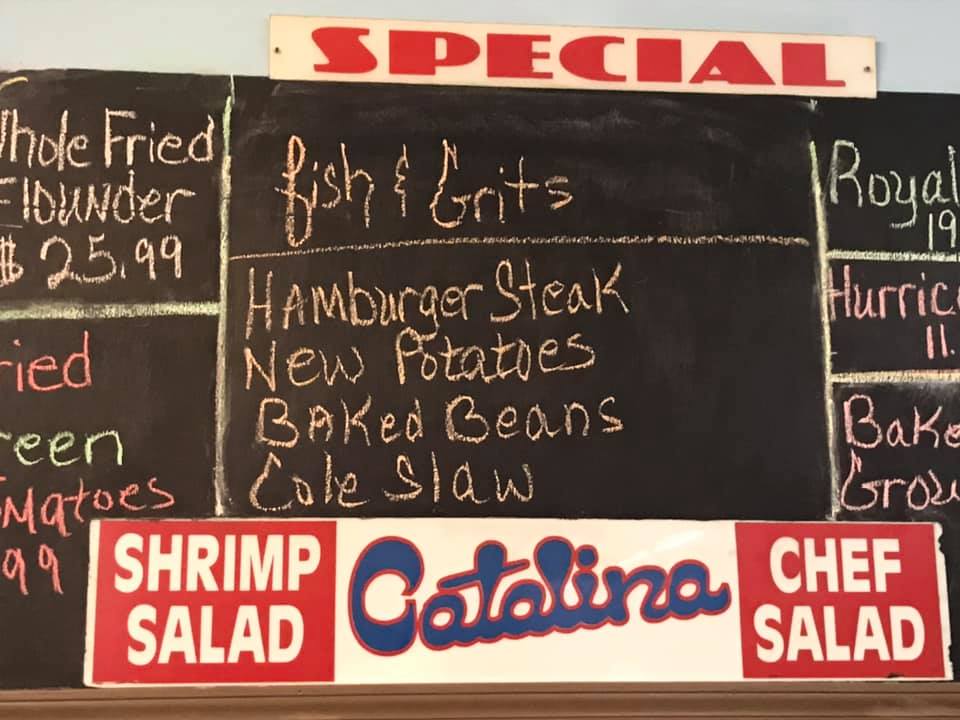 SPECIAL
Whole Fried
Flounder
$ 25.99
ried
reen
matoes
99
fish & Grits
Hamburger Steak
New Potatoes
Baked Beans
Cole Slaw
Royal
19
Hurric
11.
Bake
Grou
SHRIMP
SALAD
Catalina
CHEF
SALAD